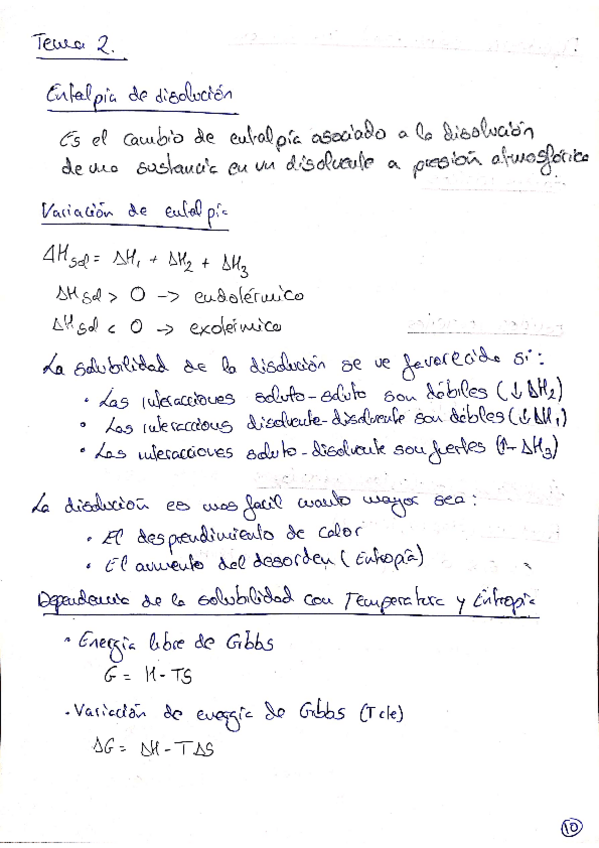 Tema 2.
Entalpía de disolución
Es el cambio de entalpía asociado a la disolución
de una sustancia en un disolvente a presión atmosférica
Variación de entalpía
ΔHsol = ΔH₁ + ΔH₂ + ΔH₃
ΔHsol > 0 -> endotérmico
ΔHsol < 0 -> exotérmico
La solubilidad de la disolución se ve favorecida si:
· Las interacciones soluto-soluto son débiles (↓ ΔH₂)
· Las interaccions disolvente-disolvente son débles (↓ ΔH₁)
· Las interacciones soluto-disolvente son fuertes (↑ ΔH₃)
La disolución es mas facil cuanto mayor sea:
· El desprendimiento de calor
· El aumento del desorden (Entropía)
Dependencia de la solubilidad con Temperatura y Entropía
· Energía libre de Gibbs
G = H - TS
· Variación de energía de Gibbs (T cte)
ΔG = ΔH - TΔS
10